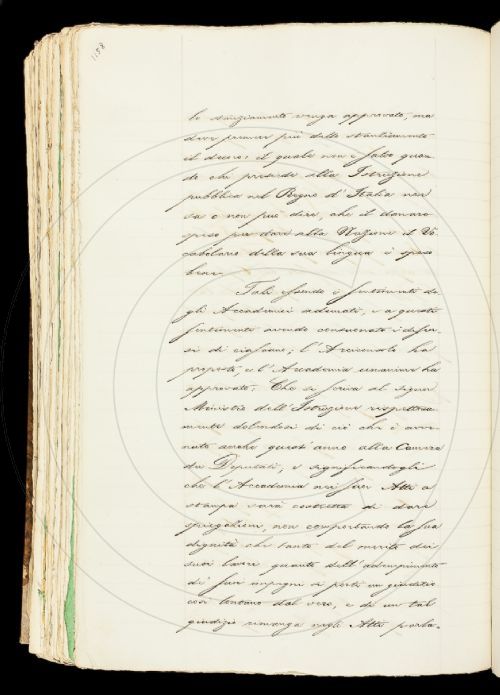 1158
lo stanziamento venga approvato, ma
deve premer più dello stanziamento
il decoro: il quale non è salvo quan-
do chi presiede alla Istruzione
pubblica nel Regno d'Italia non
sa o non può dire, che il denaro
speso per dare alla Nazione il Vo-
cabolario della sua lingua è speso
bene.
Tali essendo i sentimenti de-
gli Accademici adunati, e a questi
sentimenti avendo consuonato i discor-
si di ciascuno; l'Arciconsolo ha
proposto, e l'Accademia unanime ha
approvato; Che si scriva al signor
Ministro dell'Istruzione rispettosa-
mente dolendosi di ciò che è avve-
nuto anche quest'anno alla Camera
dei Deputati, e significandogli
che l'Accademia nei suoi Atti a
stampa sarà costretta di dare
spiegazioni, non comportando la sua
dignità che tanto del merito dei
suoi lavori quanto dell'adempimento
di suoi impegni si porti un giudizio
così lontano dal vero, e di un tal
giudizio rimanga negli Atti parla-